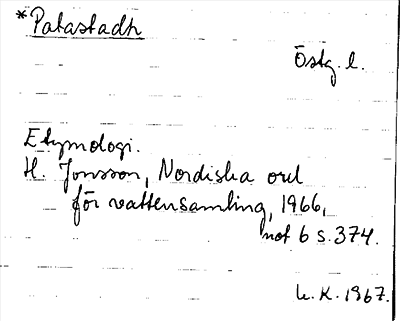 *Patastadh
Östg. l.
Etymologi.
H. Jonsson, Nordiska ord
för vattensamling, 1966,
not 6 s. 374.
L. K. 1967.